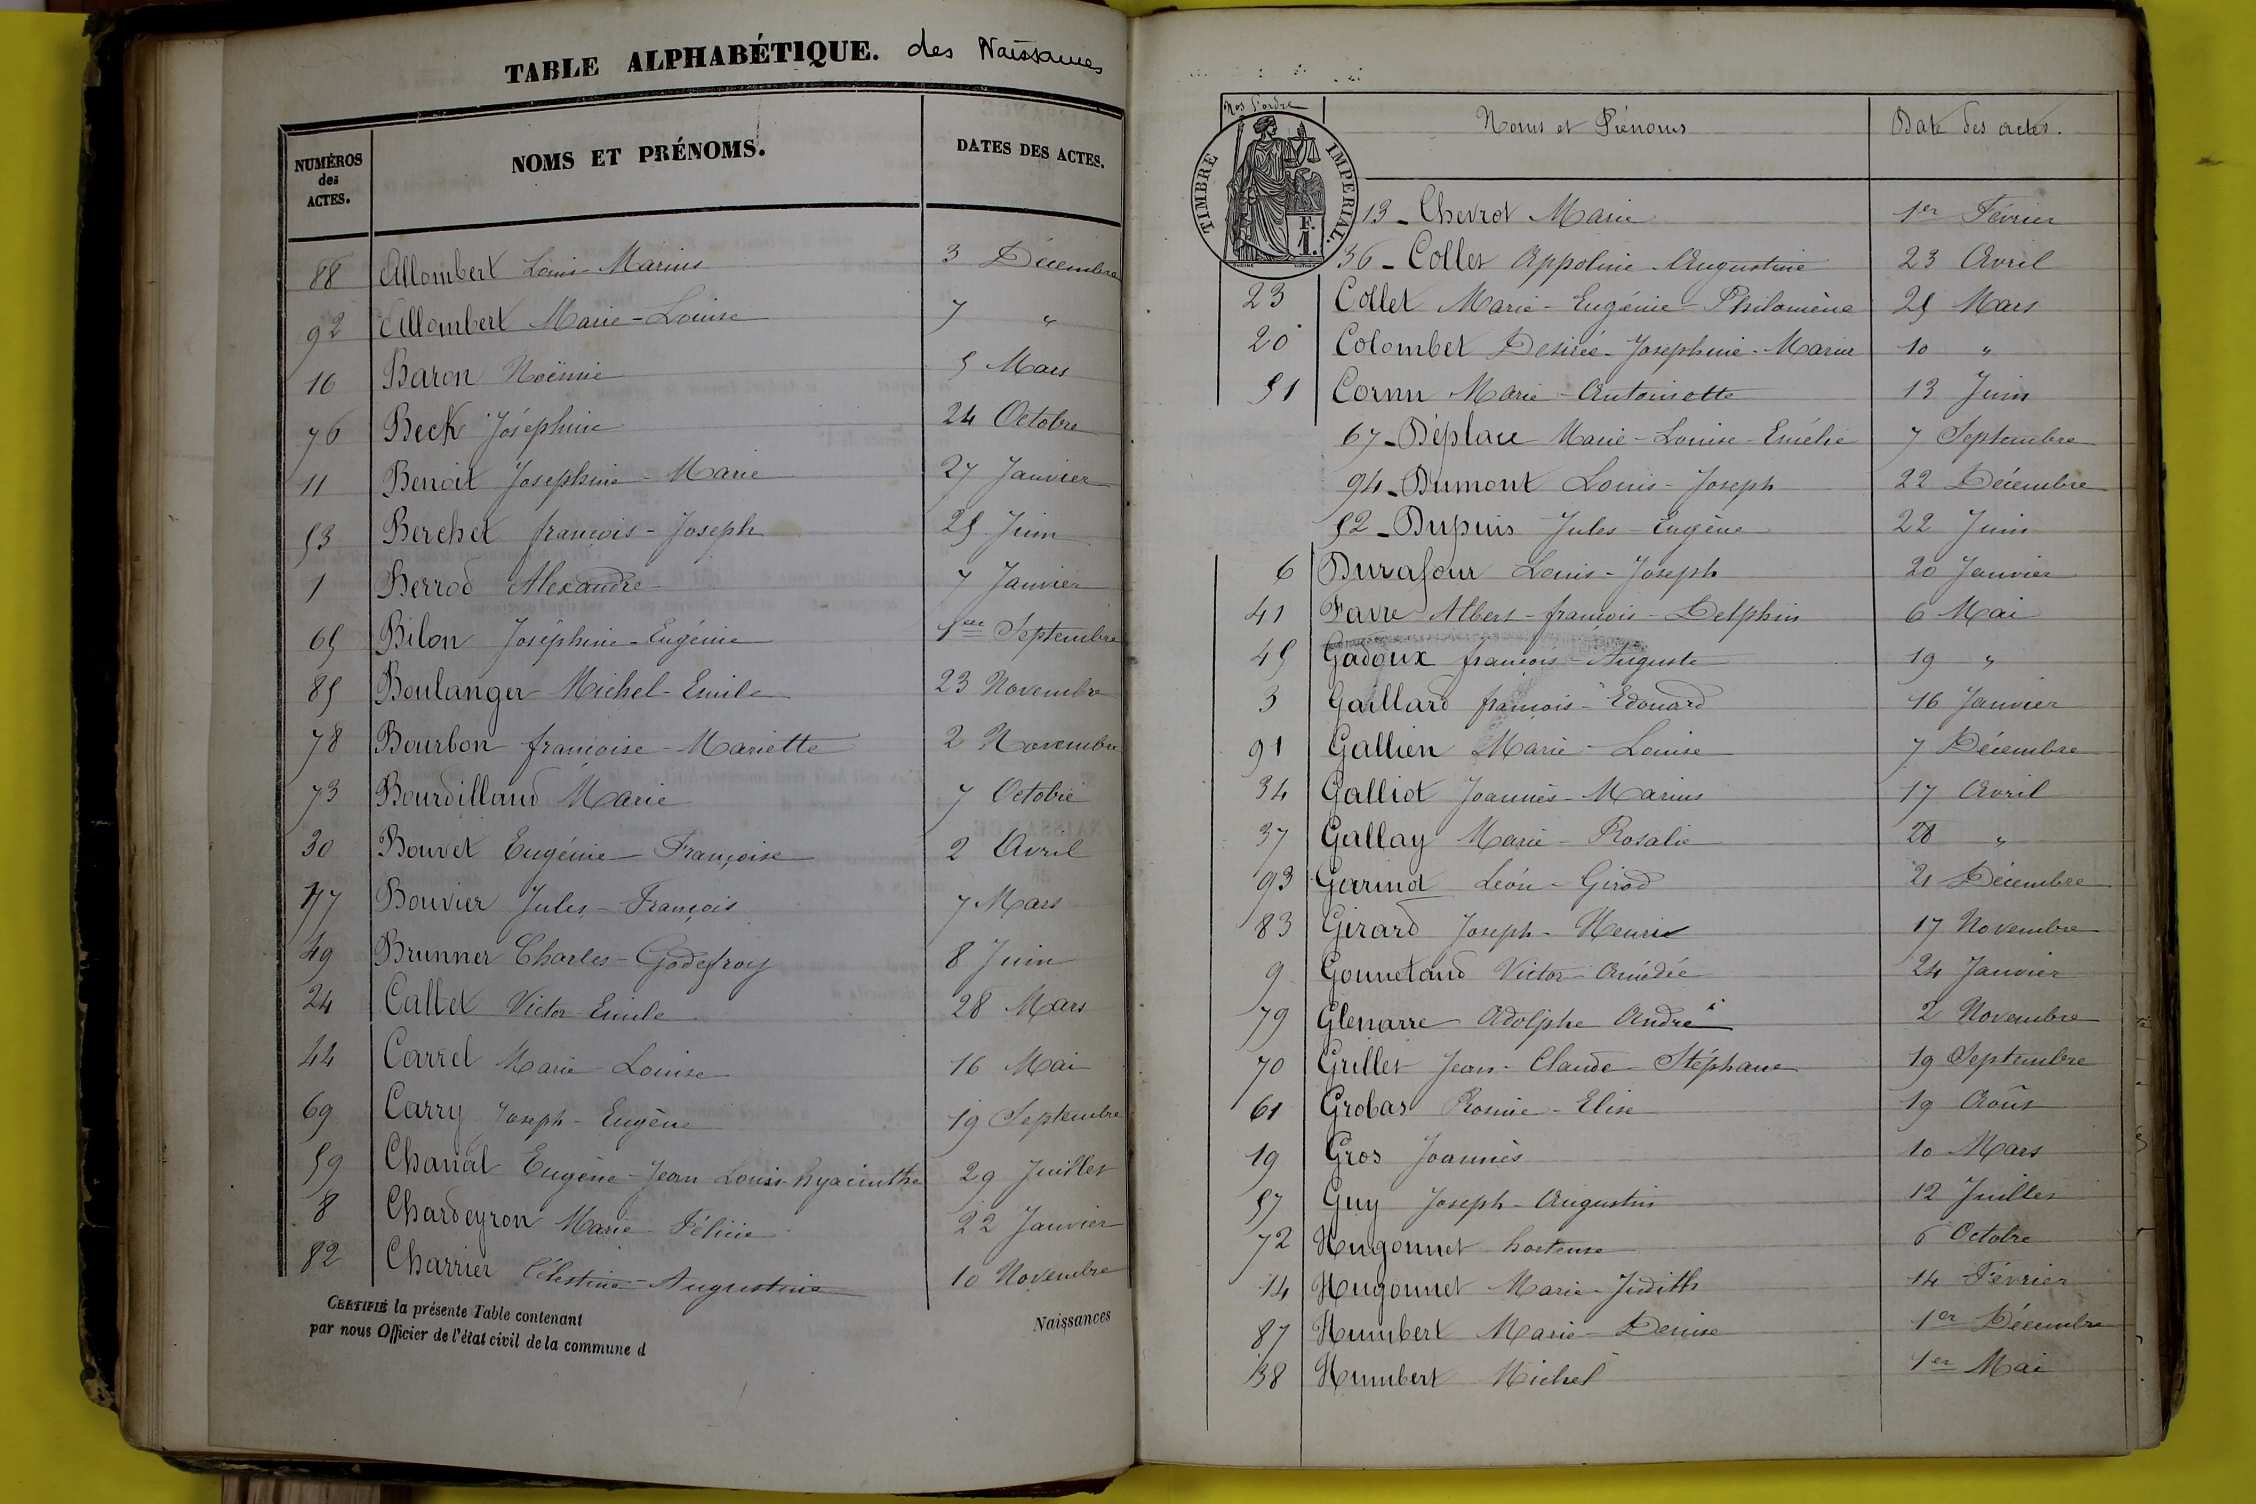 TABLE ALPHABÉTIQUE. des Naissances
NUMÉROS des ACTES. NOMS ET PRÉNOMS. DATES DES ACTES.
88 Allombert Louis-Marius 3 Décembre
92 Allombert Marie-Louise 7 "
16 Baron Noëmie 5 Mars
76 Beck Joséphine 24 Octobre
11 Benoit Josephine-Marie 27 Janvier
53 Berchet françois-Joseph 25 Juin
1 Berrod Alexandre 7 Janvier
65 Bilon Joséphine-Eugénie 1er Septembre
85 Boulanger Michel-Emile 23 Novembre
78 Bourbon françoise-Mariette 2 Novembre
73 Bourdilland Marie 7 Octobre
30 Bouvet Eugénie-Françoise 2 Avril
17 Bouvier Jules-François 7 Mars
49 Brunner Charles-Godefroy 8 Juin
24 Callet Victor Emile 28 Mars
44 Carrel Marie Louise 16 Mai
69 Carry Joseph-Eugène 19 Septembre
59 Chanal Eugène-Jean Louis-hyacinthe 29 Juillet
8 Chardeyron Marie Félicie 22 Janvier
82 Charrier Célestine-Augustine 10 Novembre
CERTIFIÉ la présente Table contenant Naissances
par nous Officier de l'état civil de la commune d
Nos d'ordre Noms et Prénoms Date des actes.
TIMBRE IMPERIAL.
F.
1.
13 - Chevrot Marie 1er Février
36 - Collet Appoline Augustine 23 Avril
23 Collet Marie-Eugénie-Philomène 25 Mars
20 Colombet Desirée-Josephine-Marie 10 "
51 Cornu Marie-Antoinette 13 Juin
67 - Déplace Marie-Louise-Emélie 7 Septembre
94 - Dumont Louis-Joseph 22 Décembre
52 - Dupuis Jules-Eugène 22 Juin
6 Durafour Louis-Joseph 20 Janvier
41 Favre Albert-françois-Delphin 6 Mai
45 Gadoux françois-Auguste 19 "
3 Gaillard françois-Edouard 16 Janvier
91 Gallien Marie-Louise 7 Décembre
34 Galliot Joannès-Marius 17 Avril
37 Gallay Marie-Rosalie 28 "
93 Garinot Léon-Girod 21 Décembre
83 Girard Joseph-Henri 17 Novembre
9 Gonnetand Victor-Amédée 24 Janvier
79 Glenarre Adolphe André 2 Novembre
70 Grillet Jean-Claude-Stéphane 19 Septembre
61 Grobas Rosine-Elise 19 Août
19 Gros Joannès 10 Mars
57 Guy Joseph-Augustin 12 Juillet
72 Hugonnet hortense 6 Octobre
14 Hugonnet Marie-Judith 14 Février
87 Humbert Marie-Denise 1er Décembre
38 Humbert Michel 1er Mai